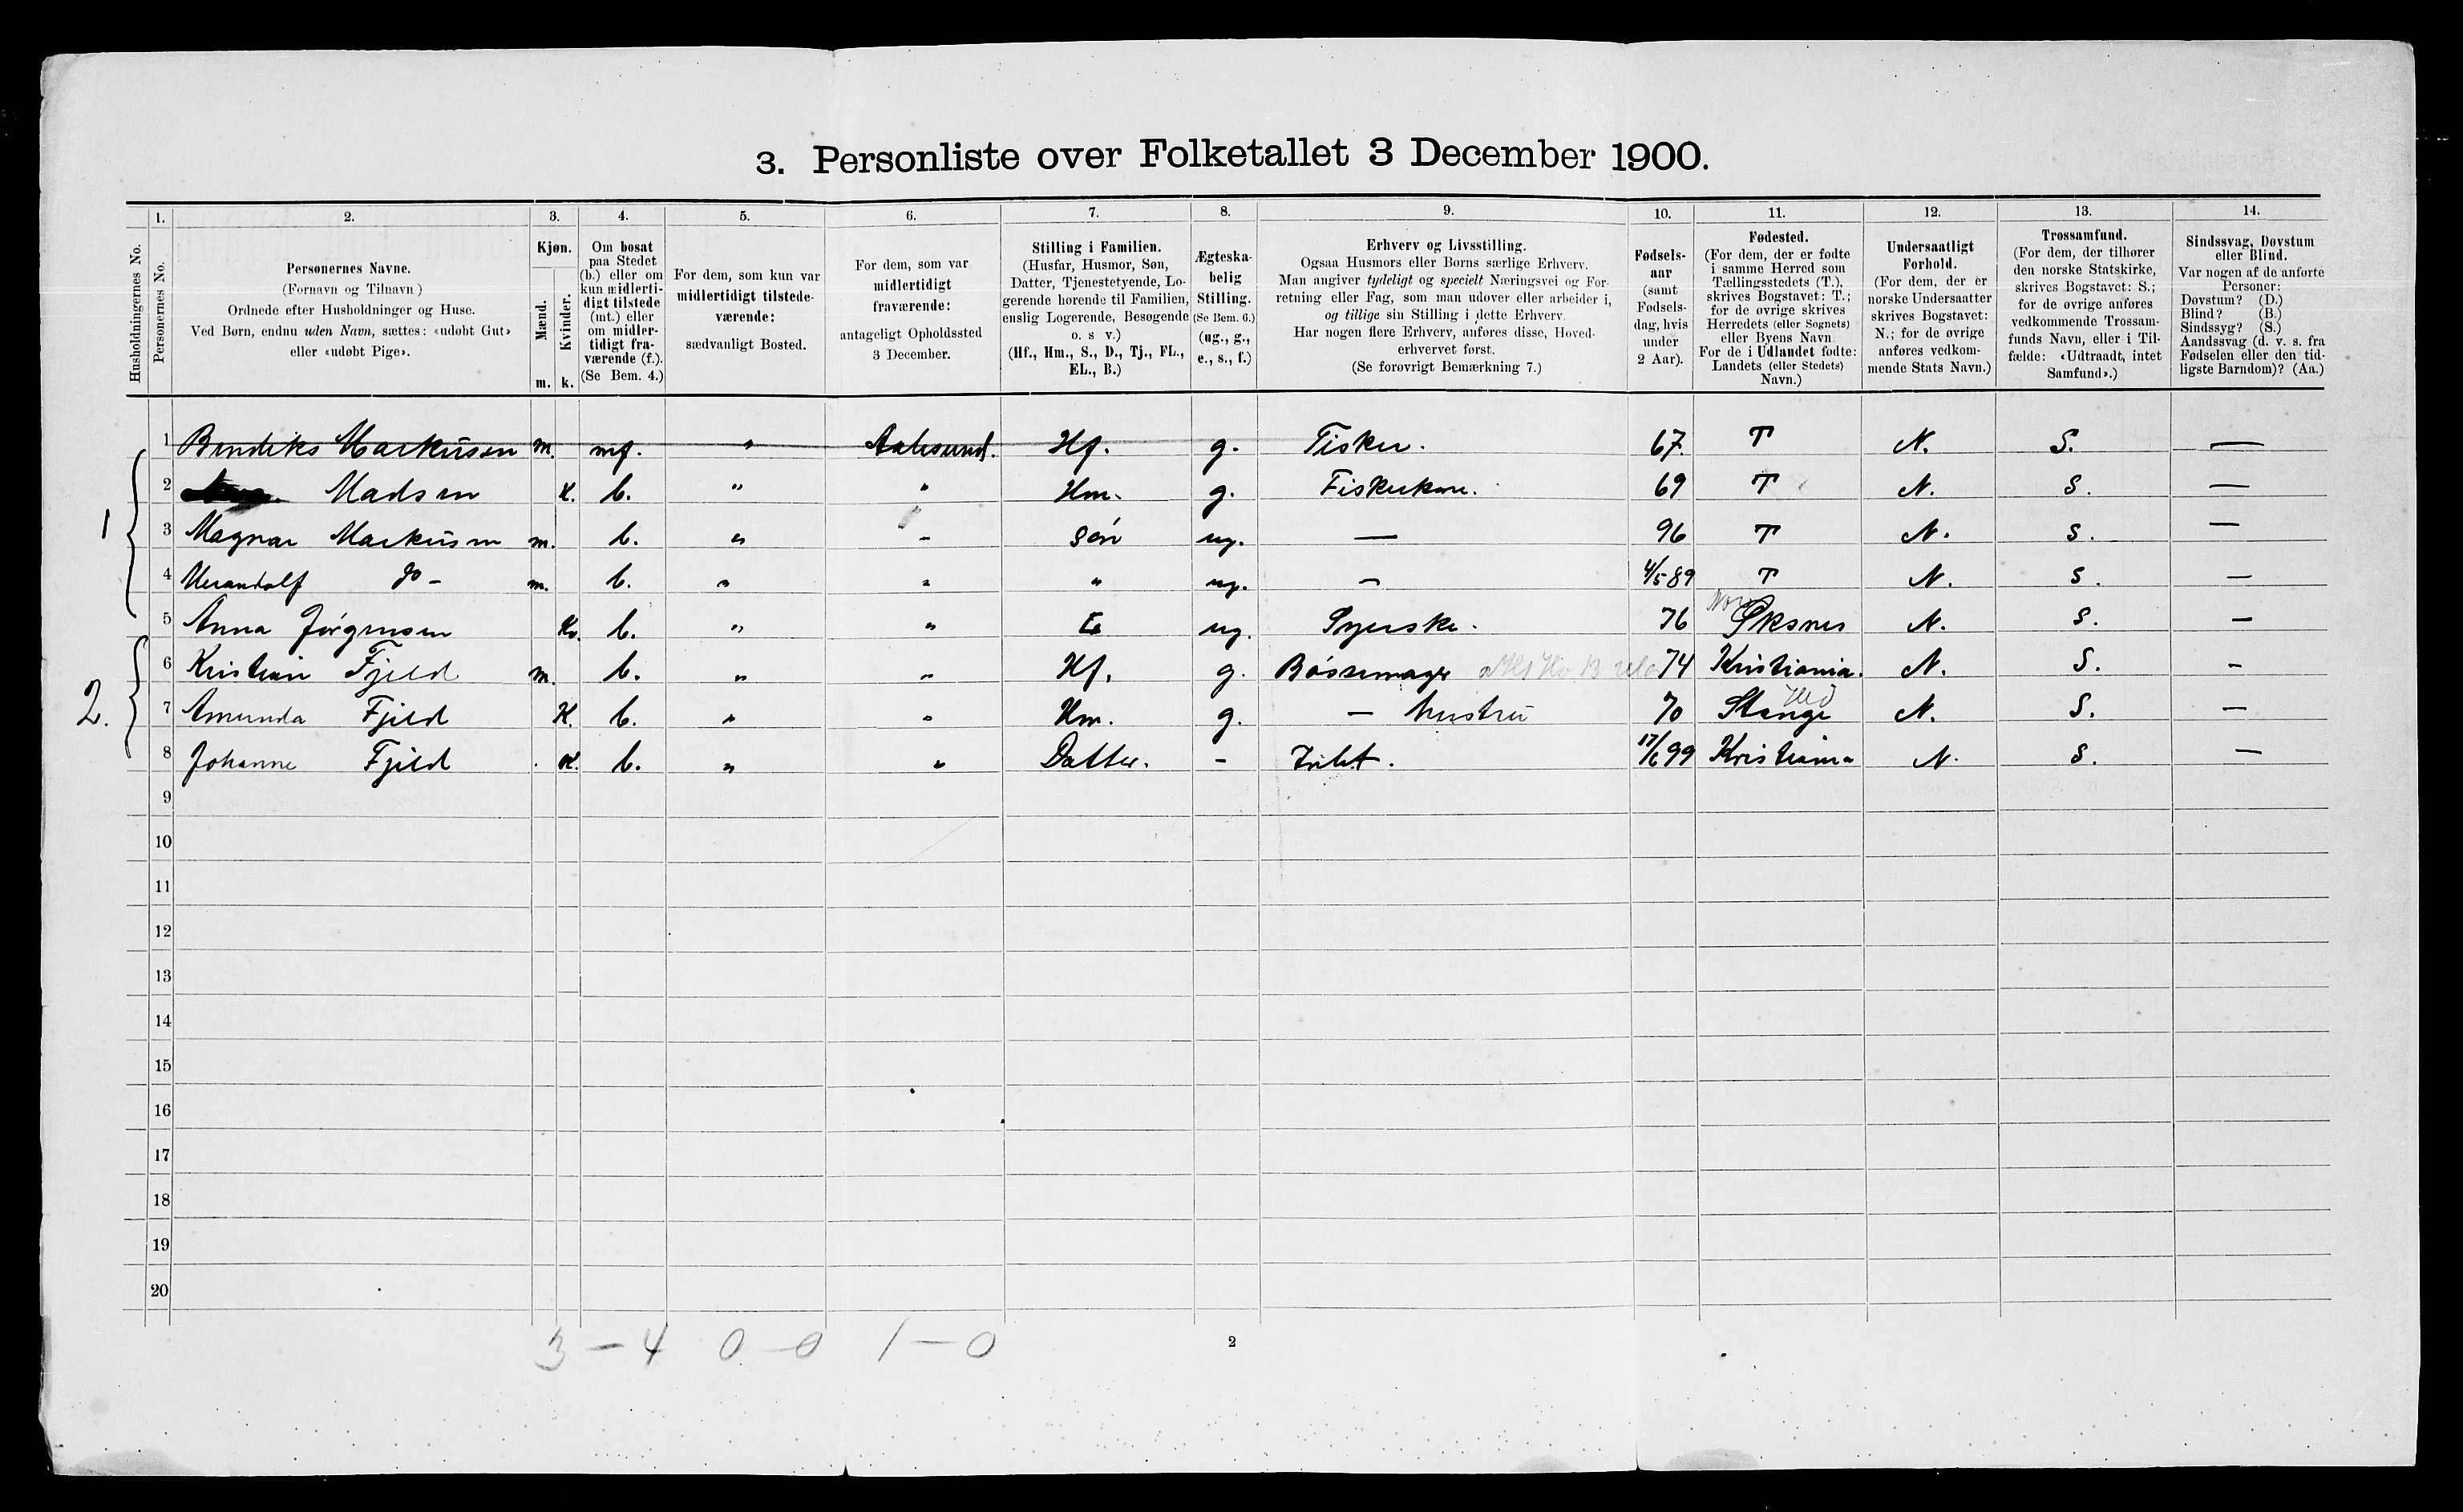 3. Personliste over Folketallet 3 December 1900.
1. 2. 3. 4. 5. 6. 7. 8. 9. 10. 11. 12. 13. 14.
Husholdningernes No.
Personernes No.
Personernes Navne.
(Fornavn og Tilnavn)
Ordnede efter Husholdninger og Huse.
Ved Børn, endnu uden Navn, sættes: «udøbt Gut»
eller «udøbt Pige».
Kjøn.
Mænd.
Kvinder.
m. k.
Om bosat
paa Stedet
(b.) eller om
kun midlerti-
digt tilstede
(mt.) eller
om midler-
tidigt fra-
værende (f.).
(Se Bem. 4.)
For dem, som kun var
midlertidigt tilstede-
værende:
sædvanligt Bosted.
For dem, som var
midlertidigt
fraværende:
antageligt Opholdssted
3 December.
Stilling i Familien.
(Husfar, Husmor, Søn,
Datter, Tjenestetyende, Lo-
gerende hørende til Familien,
enslig Logerende, Besøgende
o. s v.)
(Hf., Hm., S., D., Tj., FL.,
EL., B.)
Ægteska-
belig
Stilling.
(Se Bem. 6.)
(ug., g.,
e., s., f.)
Erhverv og Livsstilling.
Ogsaa Husmors eller Børns særlige Erhverv.
Man angiver tydeligt og specielt Næringsvei og For-
retning eller Fag, som man udøver eller arbeider i,
og tillige sin Stilling i dette Erhverv.
Har nogen flere Erhverv, anføres disse, Hoved-
erhvervet først.
(Se forøvrigt Bemærkning 7.)
Fødsels-
aar
(samt
Fødsels-
dag, hvis
under
2 Aar).
Fødested.
(For dem, der er fødte
i samme Herred som
Tællingsstedets (T.),
skrives Bogstavet: T.;
for de øvrige skrives
Herredets (eller Sognets)
eller Byens Navn.
For de i Udlandet fødte:
Landets (eller Stedets)
Navn.)
Undersaatligt
Forhold.
(For dem, der er
norske Undersaatter
skrives Bogstavet:
N.; for de øvrige
anføres vedkom-
mende Stats Navn.)
Trossamfund.
(For dem, der tilhører
den norske Statskirke,
skrives Bogstavet: S.;
for de øvrige anføres
vedkommende Trossam-
funds Navn, eller i Til-
fælde: «Udtraadt, intet
Samfund».)
Sindssvag, Døvstum
eller Blind.
Var nogen af de anførte
Personer:
Døvstum? (D.)
Blind? (B.)
Sindssyg? (S.)
Aandssvag (d. v. s. fra
Fødselen eller den tid-
ligste Barndom)? (Aa.)
1 Bendiks Markusen m. mf. " Aalesund. Hf. g. Fisker. 67. T N. S. —
2 Madsen K. b. " " Hm. g. Fiskerkone. 69 T N. S. —
1
3 Magnar Markusen m. b. " - Søn ug. — 96 T N. S. —
4 do - m. b. " " " ug. — 4/5 89 T N. S. —
5 Anna Jørgensen K. b. " " ug. Syerske. 76 Øksnes N. S. —
6 Kristian Fjeld m. b. " " Hf. g. Bøssemager 74 Kristiania. N. S. -
2.
7 Amunda Fjeld K. b. " " Hm. g. — hustru 70 Stange Hed N. S. -
8 Johanne Fjeld K. b. " " Datter. - 17/6 99 Kristiania N. S. —
9
10
11
12
13
14
15
16
17
18
19
20
3 - 4 0 - 0 1 - 0
2